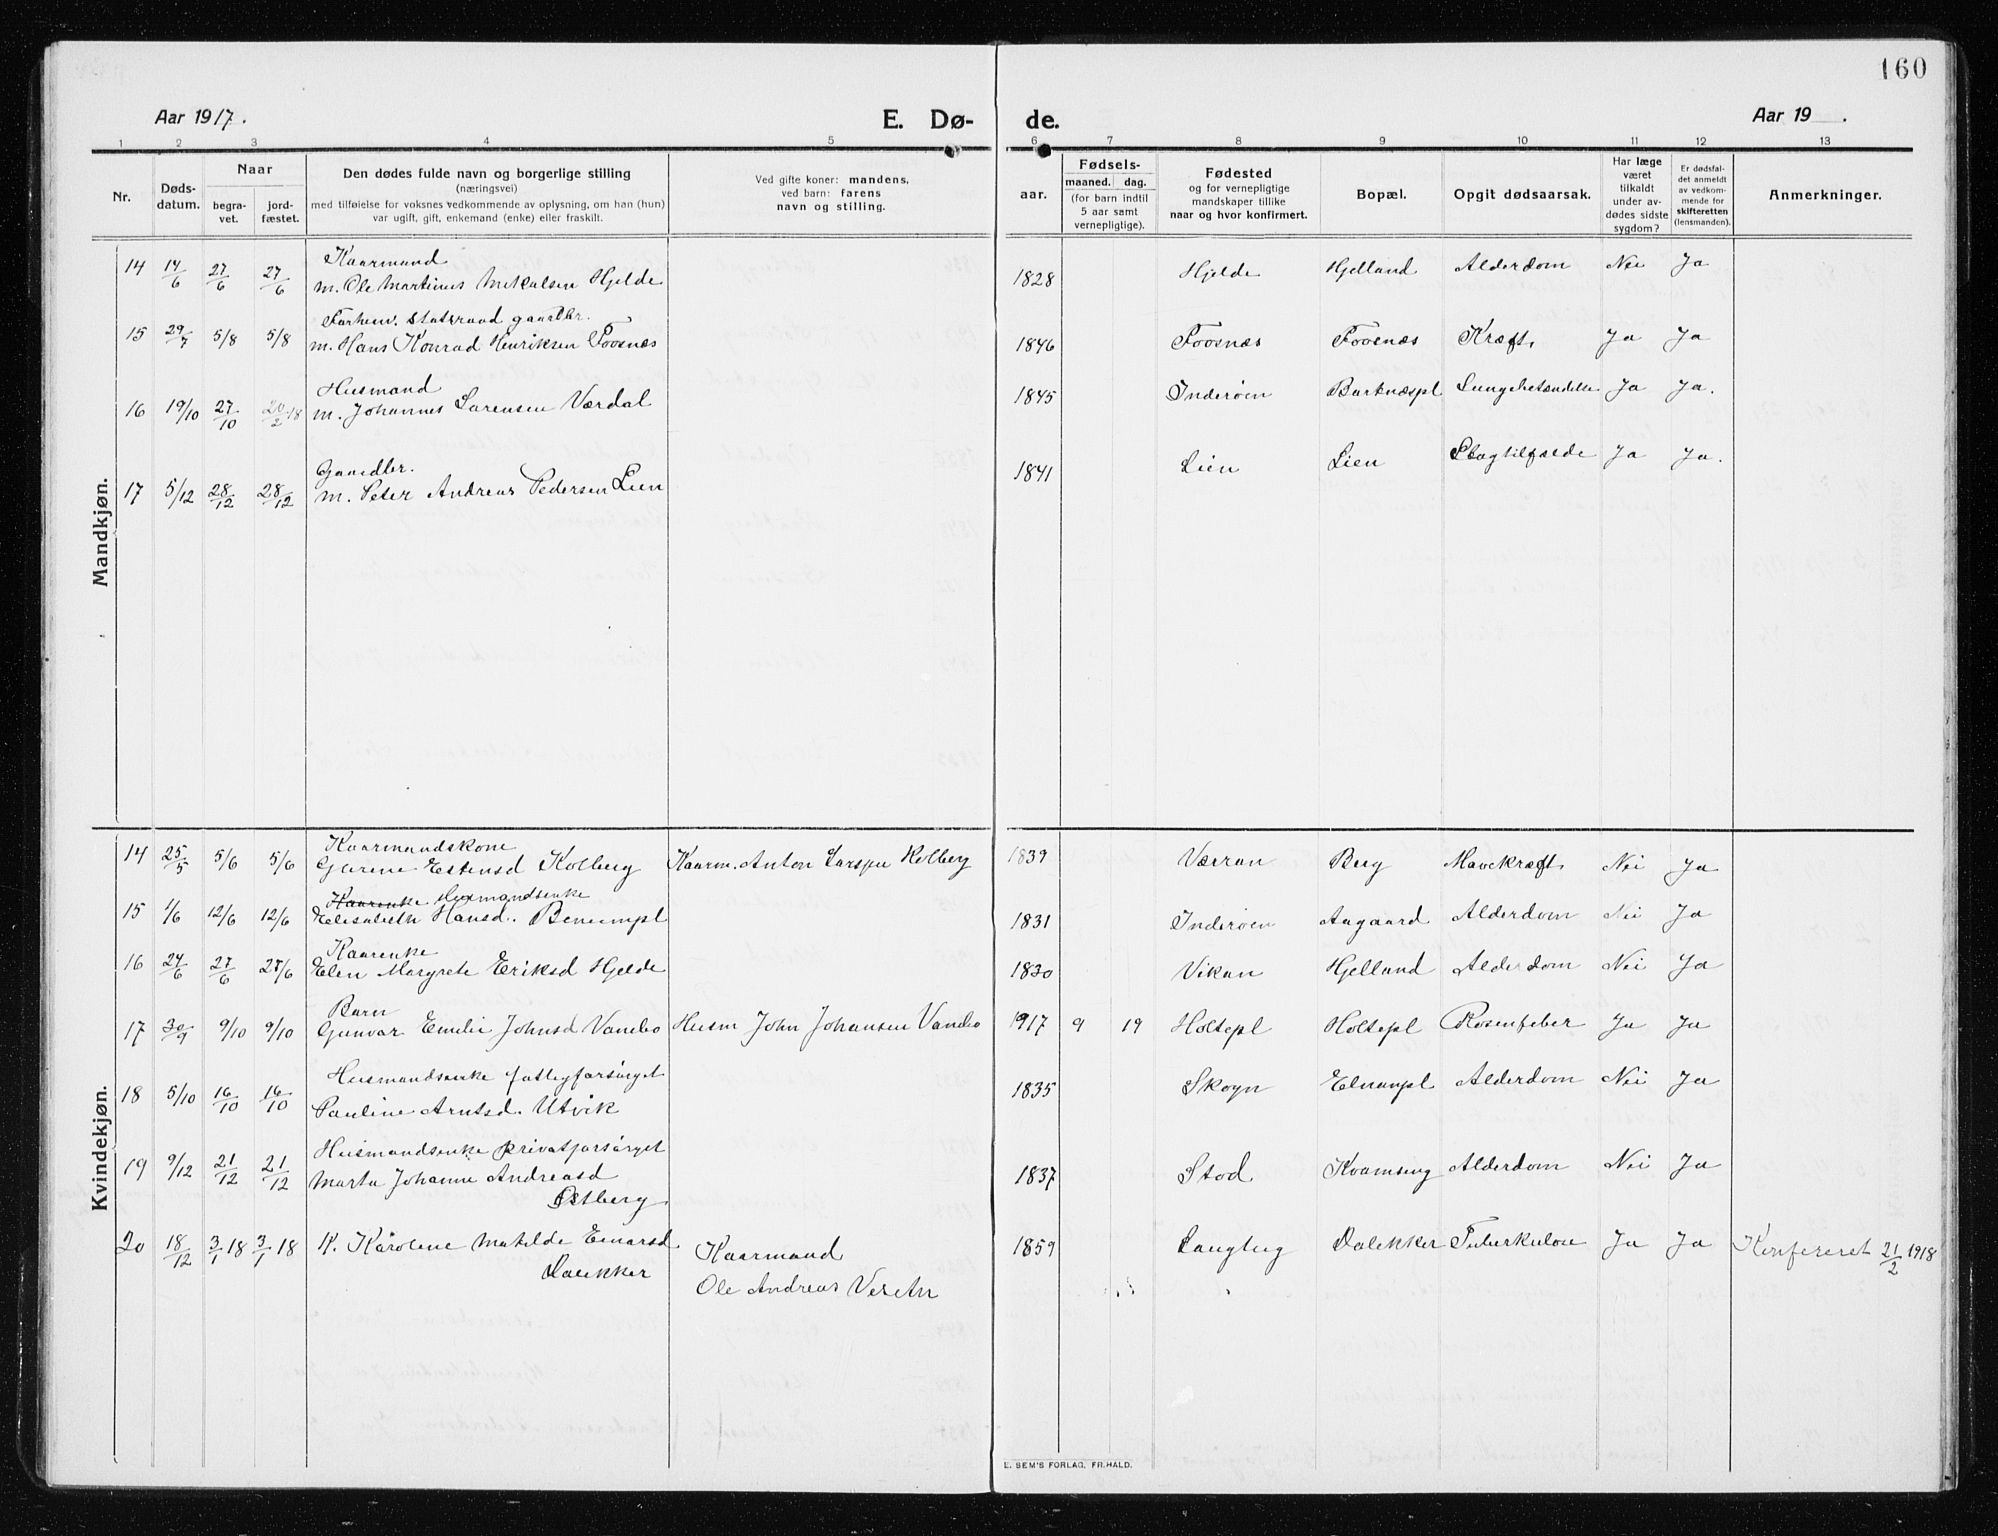 160
Aar 1917.
E. Dø-
de.
Aar 19 .
1 2 3 4 5 6 7 8 9 10 11 12 13
Nr.
Døds-
datum.
Naar
begra-
vet.
jord-
fæstet.
Den dødes fulde navn og borgerlige stilling
(næringsvei)
med tilføielse for voksnes vedkommende av oplysning, om han (hun)
var ugift, gift, enkemand (enke) eller fraskilt.
Ved gifte koner: mandens,
ved barn: farens
navn og stilling.
aar.
Fødsels-
maaned. dag.
(for barn indtil
5 aar samt
vernepligtige).
Fødested
og for vernepligtige
mandskaper tillike
naar og hvor konfirmert.
Bopæl.
Opgit dødsaarsak.
Har læge
været
tilkaldt
under av-
dødes sidste
sygdom?
Er dødsfal-
det anmeldt
av vedkom-
mende for
skifteretten
(lensmanden).
Anmerkninger.
Mandkjøn.
Kaarmand
14 14/6 27/6 27/6 m. Ole Martinus Mikalsen Hjelde 1828 Hjelde Hjelland Alderdom Nei Ja
Forhenv. statsraad gaardbr.
15 29/7 5/8 5/8 m. Hans Konrad Henriksen Foosnæs 1846 Foosnæs Foosnæs Kræft Ja Ja
Husmand
16 19/10 27/10 20/2 18 m. Johannes Sørensen Værdal 1845 Inderøen Barknæspl Lungebetændelse Ja Ja.
Gaardbr.
17 5/12 28/12 28/12 m. Peter Andreas Pedersen Lien 1841 Lien Lien Slagtilfælde Ja Ja.
Kvindekjøn.
Kaarmandskone
14 25/5 5/6 5/6 Gurine Estensd Kolberg Kaarm. Anton Larsen Kolberg 1839 Værran Berg Mavekræft Nei Ja
Kaarenke Husmandsenke
15 1/6 12/6 12/6 Elisabeth Hansd. Benempl 1831 Inderøen Aagaard Alderdom Nei Ja
Kaarenke
16 24/6 27/6 27/6 Elen Margrete Eriksd Hjelde 1830 Vikan Hjelland Alderdom Nei Ja
Barn
17 30/9 9/10 9/10 Gunvor Emelie Johnsd Vanebo Husm John Johansen Vanebo 1917 9 19 Holtepl Holtepl Rosenfeber Ja Ja
Husmandsenke fattigforsørget
18 5/10 16/10 16/10 Pauline Arntsd. Utvik 1835 Skogn Elnanpl Alderdom Nei Ja
Husmandsenke privatforsørget
19 9/12 21/12 21/12 Marta Johanne Andreasd 1837 Stod Kvamseng Alderdom Nei Ja
Østberg
20 18/12 3/1 18 3/1 18 K. Karolene Matilde Einarsd Kaarmand 1859 Langhug Dalekker Tuberkulose Ja Ja Konfereret 21/2 1918
Dalekker
Ole Andreas
E. SEM'S FORLAG, FR.HALD.